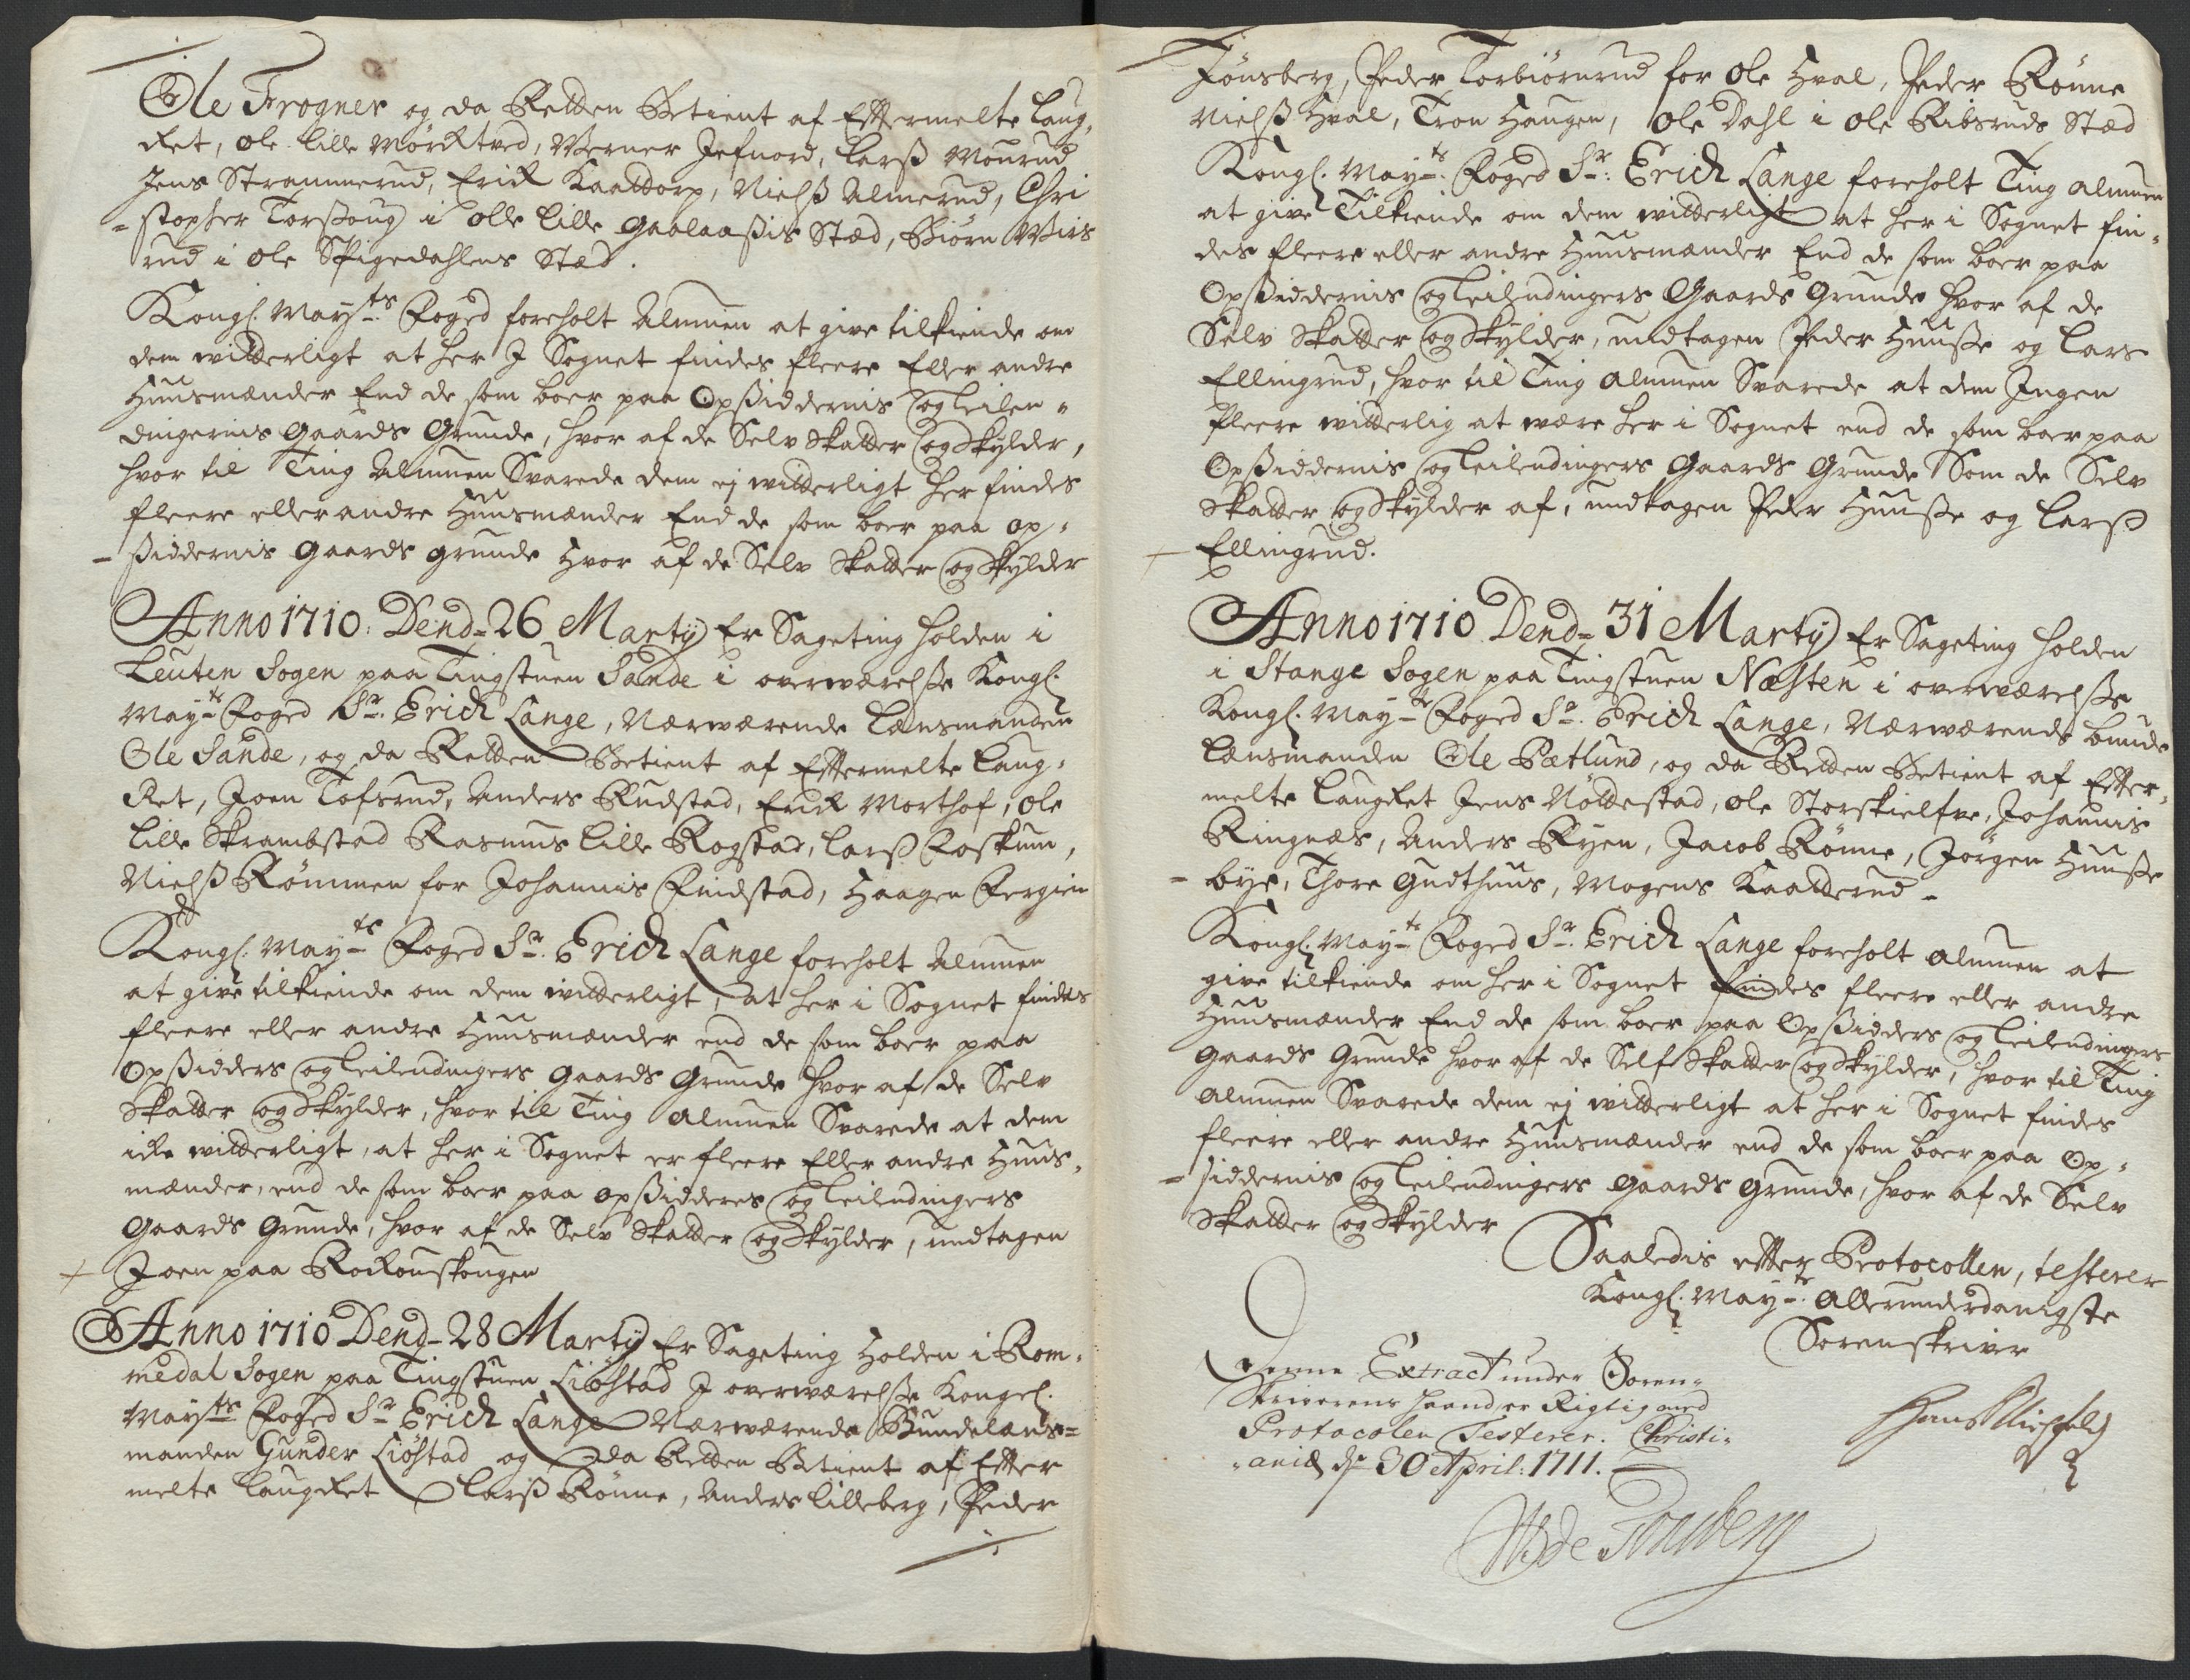 Ole Frogner og da Retten Betient af Effermelte Laug,
Ret, Ole Lille Mørchved, Werner Jefnord, Larß Mourud
Jens Strammerud, Erich Kaattorp, Nielß Almerud, Chri
-stopher Torßoug i olle Lille Gaalaaßis Stæd, Biørn Wirs
rud i Ole Spigedahlens Stæd.
Kongl. Mayts Foged foreholt Almuen at give tilkiende om
dem witterligt at her J Sognet findes fleere Eller andre
Huusmænder End de som boer paa Opßiddernis og Leilen-
dingernis Gaards Grunde, hvor af de Selv Skatter og Skylder,
hvor til Ting Almuen Svarede dem ej witterligt her findes
fleere eller andre Huusmænder End de som boer paa Op-
-ßiddernis Gaards grunde Hvor af de Selv Skatter og Skylder
Anno 1710. Dend 26 Marty Er Sageting holden i
Leuten Sogen paa Tingstuen Sande i overwærelße Kongl.
Mayts Foged Sr. Erich Lange, Nærwærende Lænsmanden
Ole Sande, og da Retten Betient af Effermelte Laug-
Ret, Joen Tofsrud, Anders Rudstad, Erich Morthof, Ole
Lille Skrambstad Rasmus Lille Rogstad, Larß Foskum,
Nielß Rømmen for Johannis Findstad, Haagen Fergien
Kongl. Mayts Foged Sr. Erich Lange foreholt Almuen
at give tilkiende om dem witterligt, at her i Sognet findes
fleere eller andre Huusmænder end de som boer paa
Opßidders og Leilendingers Gaards Grunde hvor af de Selv
Skatter og Skylder, hvor til Ting Almuen Svarede at dem
icke witterligt, at her i Sognet er fleere Eller andre Huus-
mænder, end de som boer paa opßidderes og Leilendingers
Gaards Grunde, hvor af de Selv Skatter og Skylder, undtagen
Joen paa Rockouskougen
Anno 1710 Dend 28 Marty Er Sageting Holden i Rom-
medal Sogen paa Tingstuen Liøstad J overwærelße Kongel.
Mayts Foged Sr Erich Lange Nærwærende Bundelæns-
manden Gunder Liøstad og da Retten Betient af Effter
melte Laugret Larß Rønne, Anders Lilleberg, Peder
Jønsberg, Peder Torbiørnrud for Ole Hval, Peder Rønne
Nielß Hval, Tron Haugen, Ole Dahl i Ole Ribsruds Stæd
Kongl. Mayts. Foged Sr: Erich Lange foreholt Ting Almuen
at give Tilkiende om dem witterligt at her i Sognet fin-
des fleere eller andre Huusmænder End de som boer paa
Opßiddernis og Leilendingers Gaards Grunde hvor af de
Selv Skatter og Skylder, undtagen Peder Huuße og Lars
Ellingrud, hvor til Ting Almuen Svarede at dem Ingen
fleere witterlig at være her i Sognet end de som boer paa
Opßiddernis og Leilendingers Gaards Grunde Som de Selv
Skatter og Skylder af, undtagen Peder Huuße og Larß
Ellingrud.
Anno 1710 Dend 31 Marty Er Sageting holden
i Stange Sogen paa Tingstuen Næsten i overwærelße
Kongl. Mayts Foged Sr. Erich Lange, Nærwærende bunde
Lænsmanden Ole Bætlund, og da Retten Betient af Effter-
melte Laugret Jens Nøttestad, Ole Storskielfve, Johannis
Ringnæs, Anders Ryen, Jacob Rønne, Jørgen Huuße
-bye, Thore Gudthuus, Mogens Kaatterud -
Kongl. Mayts Foged Sr. Erich Lange foreholt almuen at
give tilkiende om her i Sognet findes fleere eller andre
Huusmænder End de som boer paa Opßidders og Leilendingers
Gaards Grunde hvor af de Self Skatter og Skylder, hvor til Ting
Almuen Svarede dem ej witterligt at her i Sognet findes
fleere eller andre Huusmænder end de som boer paa Op-
-siddernis og Leilendingers Gaards Grunde, hvor af de Selv
Skatter og Skylder
Saaledis effter Protocollen, testerer
Kongl. Mayts. Allerunderdanigste
Sorenskriver
Denne Extract under Soren-
Skriverens Haand, er Rigtig med
Protocolen Testerer. Christi-
-aniæ d 30 April: 1711.